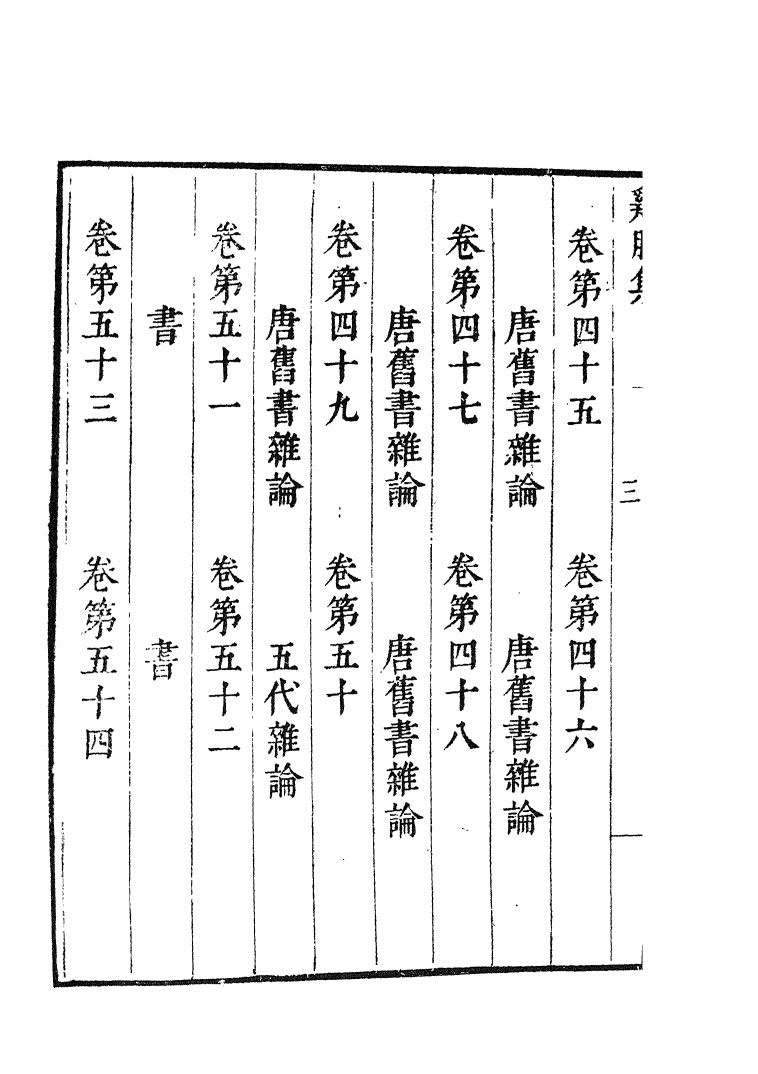 卷第四十五 卷第四十六
唐舊書雜論 唐舊書雜論
卷第四十七 卷第四十八
唐舊書雜論 唐舊書雜論
卷第四十九 卷第五十
唐舊書雜論 五代雜論
卷第五十一 卷第五十二
書 書
卷第五十三 卷第五十四
三